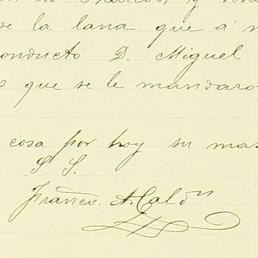 de la lana que á
conducto D. Miguel
que se le mandaro
cosa por hoy su mas
S. S.
Franco. A. Calón